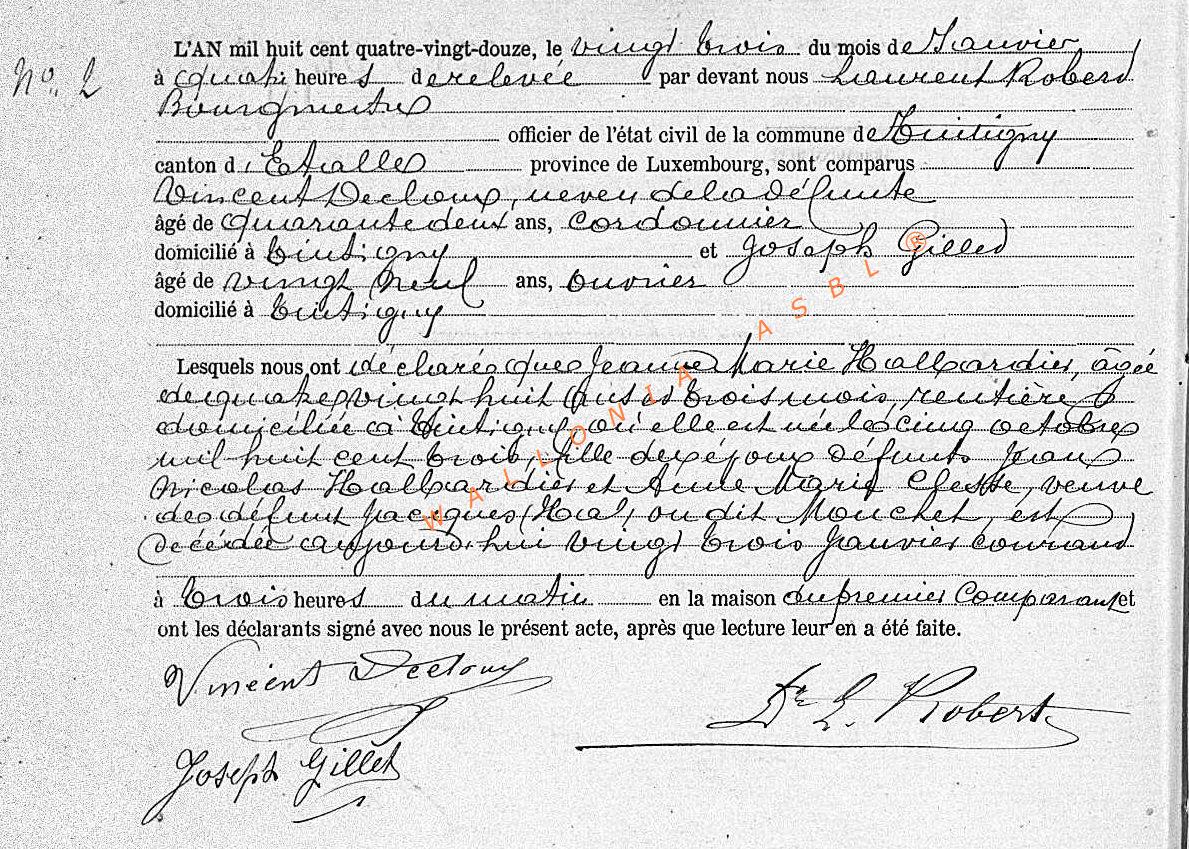 L'AN mil huit cent quatre-vingt-douze, le vingt trois du mois de Janvier
N° 2
à quatre heures de relevée par devant nous Laurent Robert
Bourgmestre
officier de l'état civil de la commune de Tintigny
canton d'Etalle province de Luxembourg, sont comparus
Vincent Decloux, neveu de la défunte
âgé de quarante deux ans, cordonnier
domicilié à Tintigny et Joseph Gillet
âgé de vingt neuf ans, ouvrier
domicilié à Tintigny
Lesquels nous ont déclaré que Jeanne Marie Halbardier, âgée
de quatre vingt huit ans et trois mois, rentière
domiciliée à Tintigny, où elle est née le cinq octobre
mil huit cent trois, fille des époux défunts Jean
Nicolas Halbardier et Anne Marie veuve
de défunt Jacques ou dit Mouchet, est
décédée aujourd'hui vingt trois Janvier courant
à trois heures du matin en la maison du premier Comparant et
ont les déclarants signé avec nous le présent acte, après que lecture leur en a été faite.
Vincent Decloux
Dr L. Robert
Joseph Gillet
WALLONIA ASBL ®